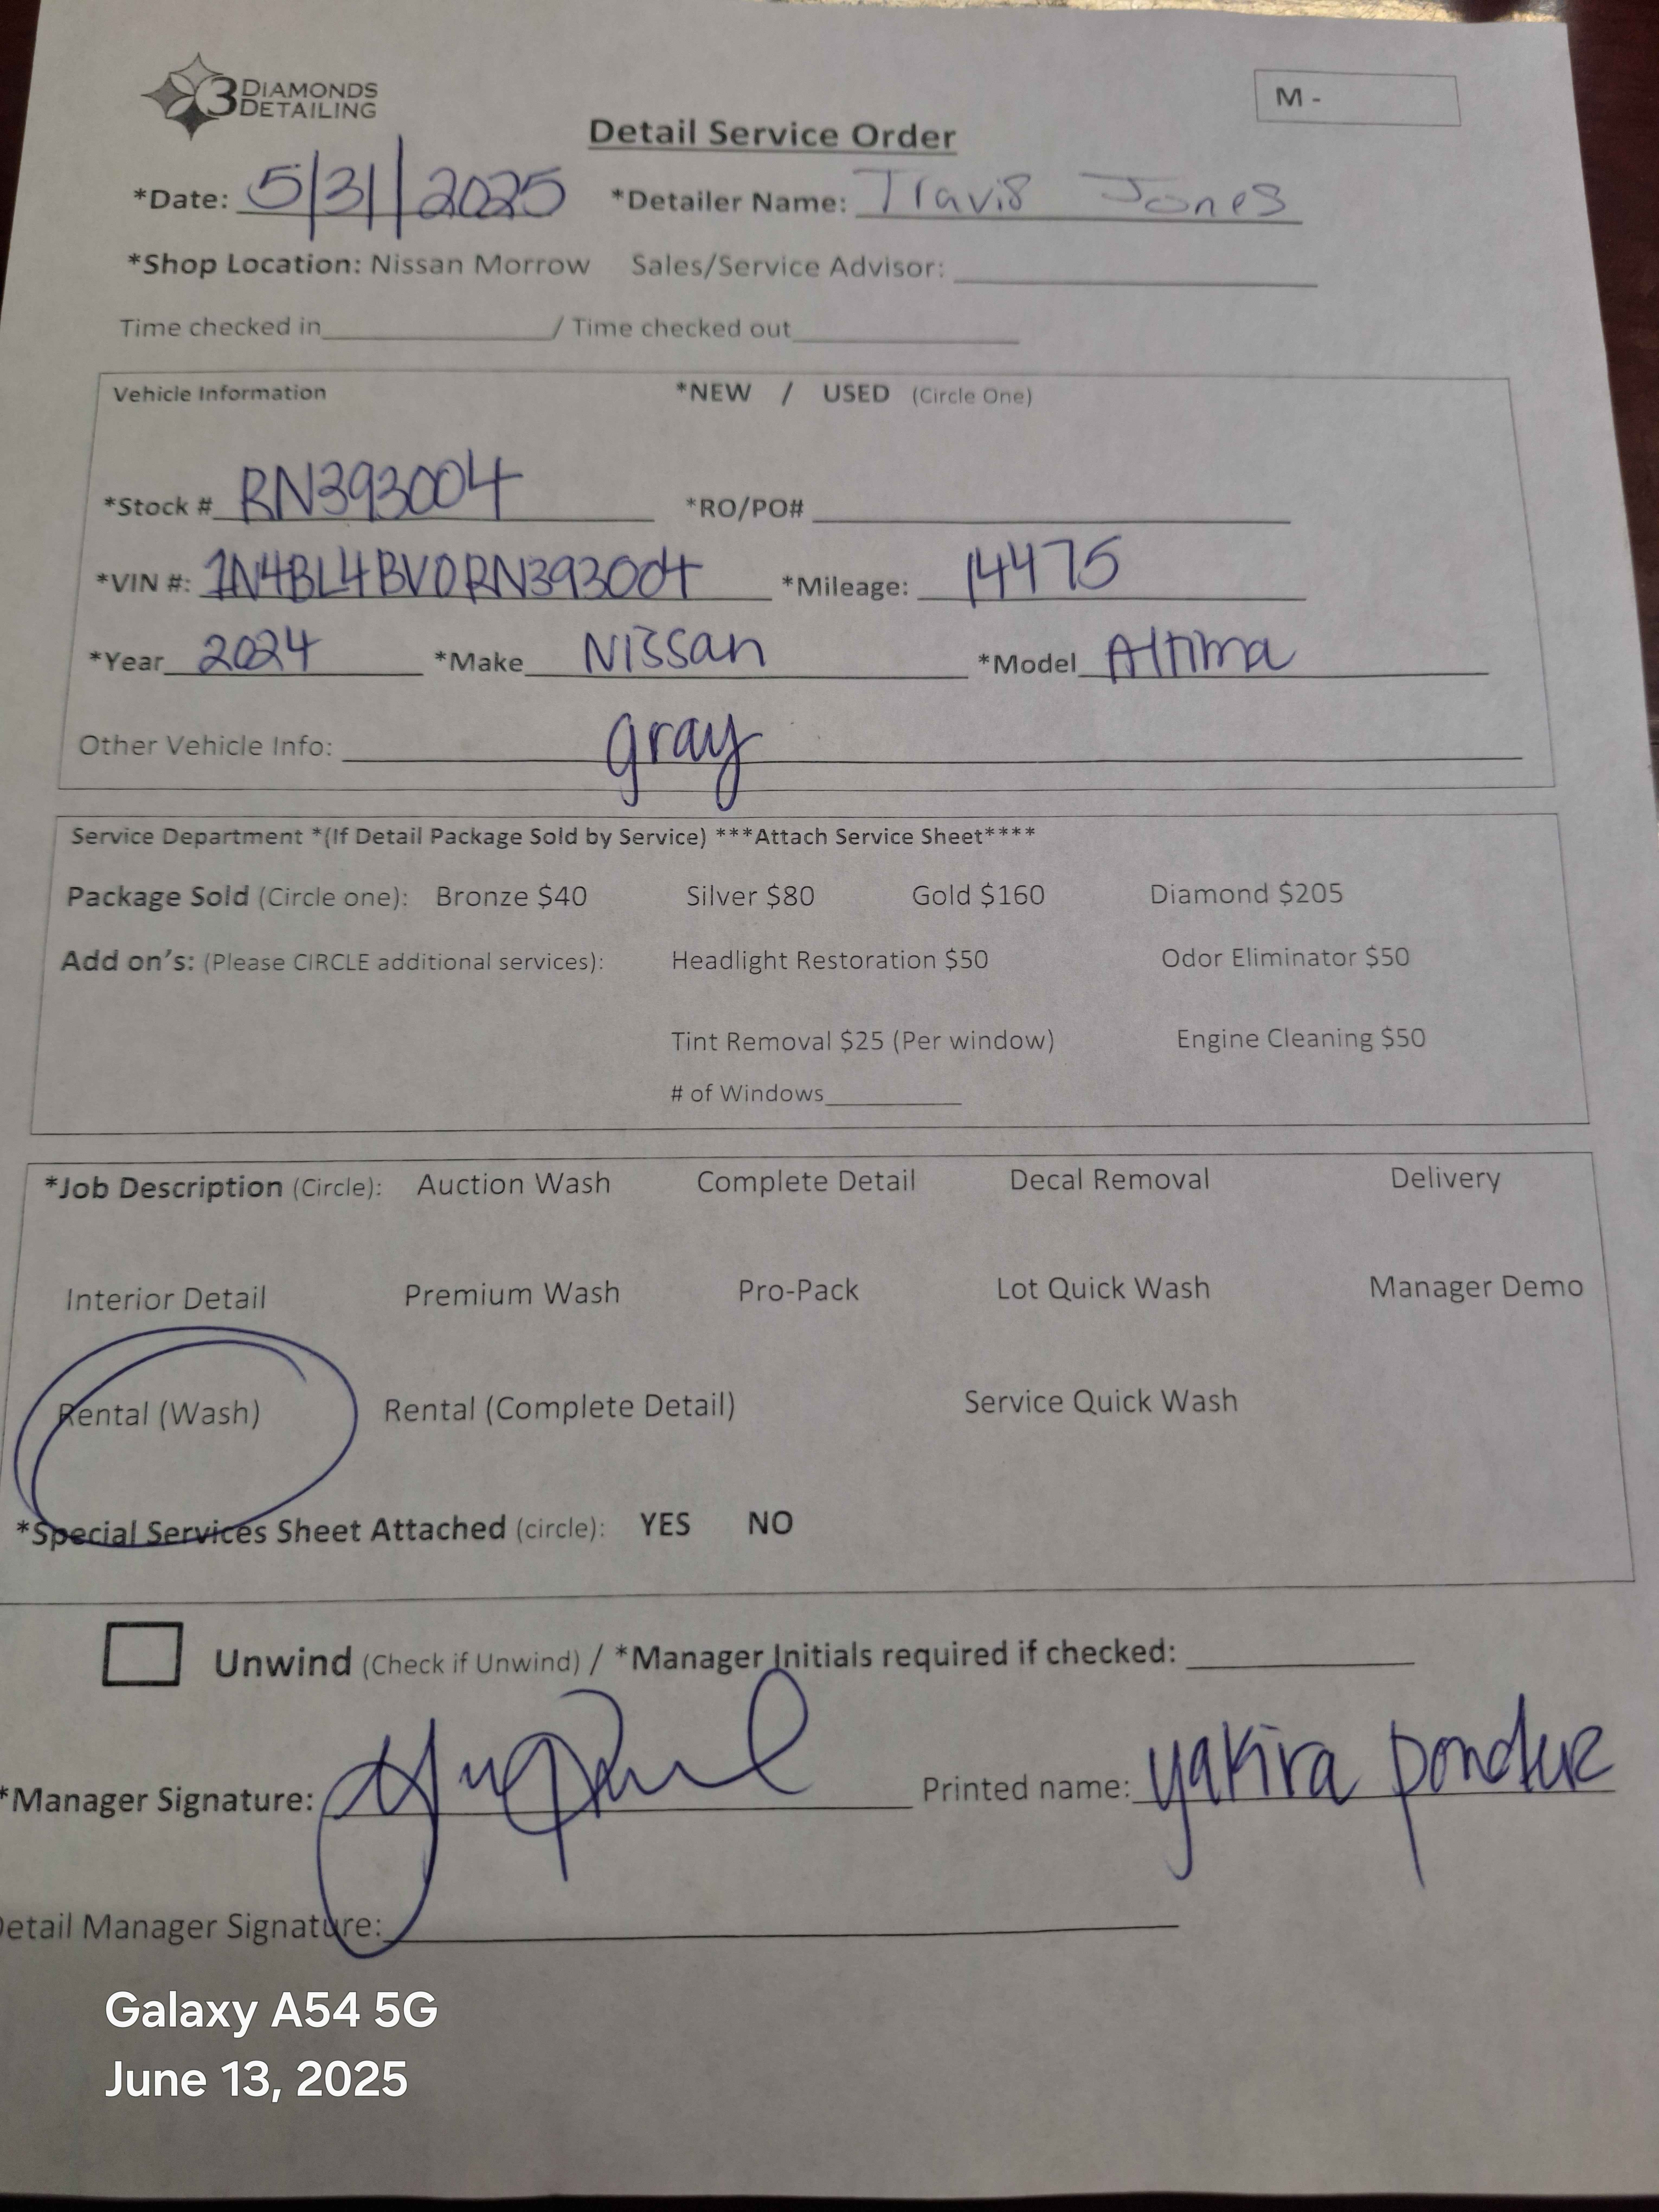 3 DIAMONDS
DETAILING
M -
Detail Service Order
*Date: 5/31/2025 *Detailer Name: Travis Jones
*Shop Location: Nissan Morrow Sales/Service Advisor:
Time checked in / Time checked out
Vehicle Information *NEW / USED (Circle One)
*Stock # RN393004 *RO/PO#
*VIN #: 1N4BL4BV0RN393004 *Mileage: 14475
*Year 2024 *Make Nissan *Model Altima
Other Vehicle Info: gray
Service Department *(If Detail Package Sold by Service) ***Attach Service Sheet****
Package Sold (Circle one): Bronze $40 Silver $80 Gold $160 Diamond $205
Add on's: (Please CIRCLE additional services): Headlight Restoration $50 Odor Eliminator $50
Tint Removal $25 (Per window) Engine Cleaning $50
# of Windows
*Job Description (Circle): Auction Wash Complete Detail Decal Removal Delivery
Interior Detail Premium Wash Pro-Pack Lot Quick Wash Manager Demo
Rental (Wash) Rental (Complete Detail) Service Quick Wash
*Special Services Sheet Attached (circle): YES NO
Unwind (Check if Unwind) / *Manager Initials required if checked:
*Manager Signature: Printed name: yakira
Detail Manager Signature:
Galaxy A54 5G
June 13, 2025